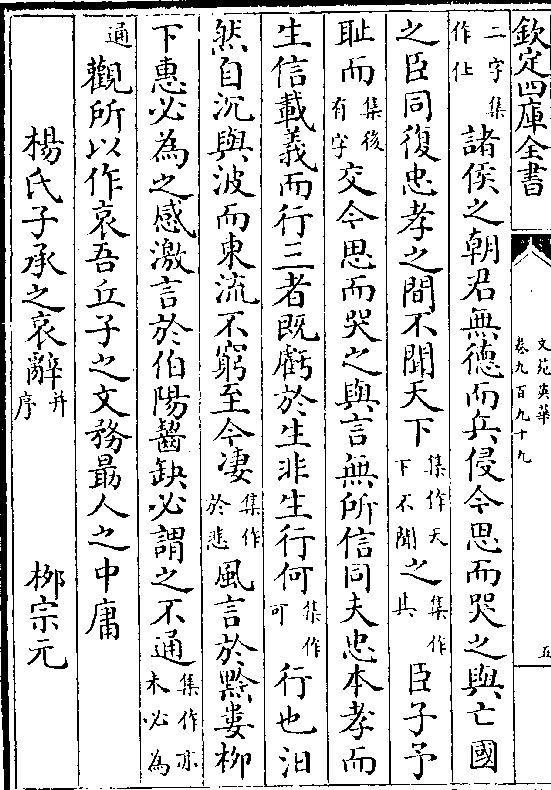 欽定四庫全書
文苑英華
卷九百九十九
五
二字集作仕諸侯之朝君無德而兵侵今思而哭之與亡國
之臣同復忠孝之間不聞天下集作天下不聞之集作其臣子予
耻而集後有字交今思而哭之與言無所信同夫忠本孝而
生信載義而行三者既虧於生非生行何集作可行也汩
然自沉與波而東流不窮至今凄集作於悲風言於黔婁柳
下惠必為之感激言於伯陽齧缺必謂之不通集作亦未必為
通觀所以作哀吾丘子之文務最人之中庸
楊氏子承之哀辭并序 柳宗元